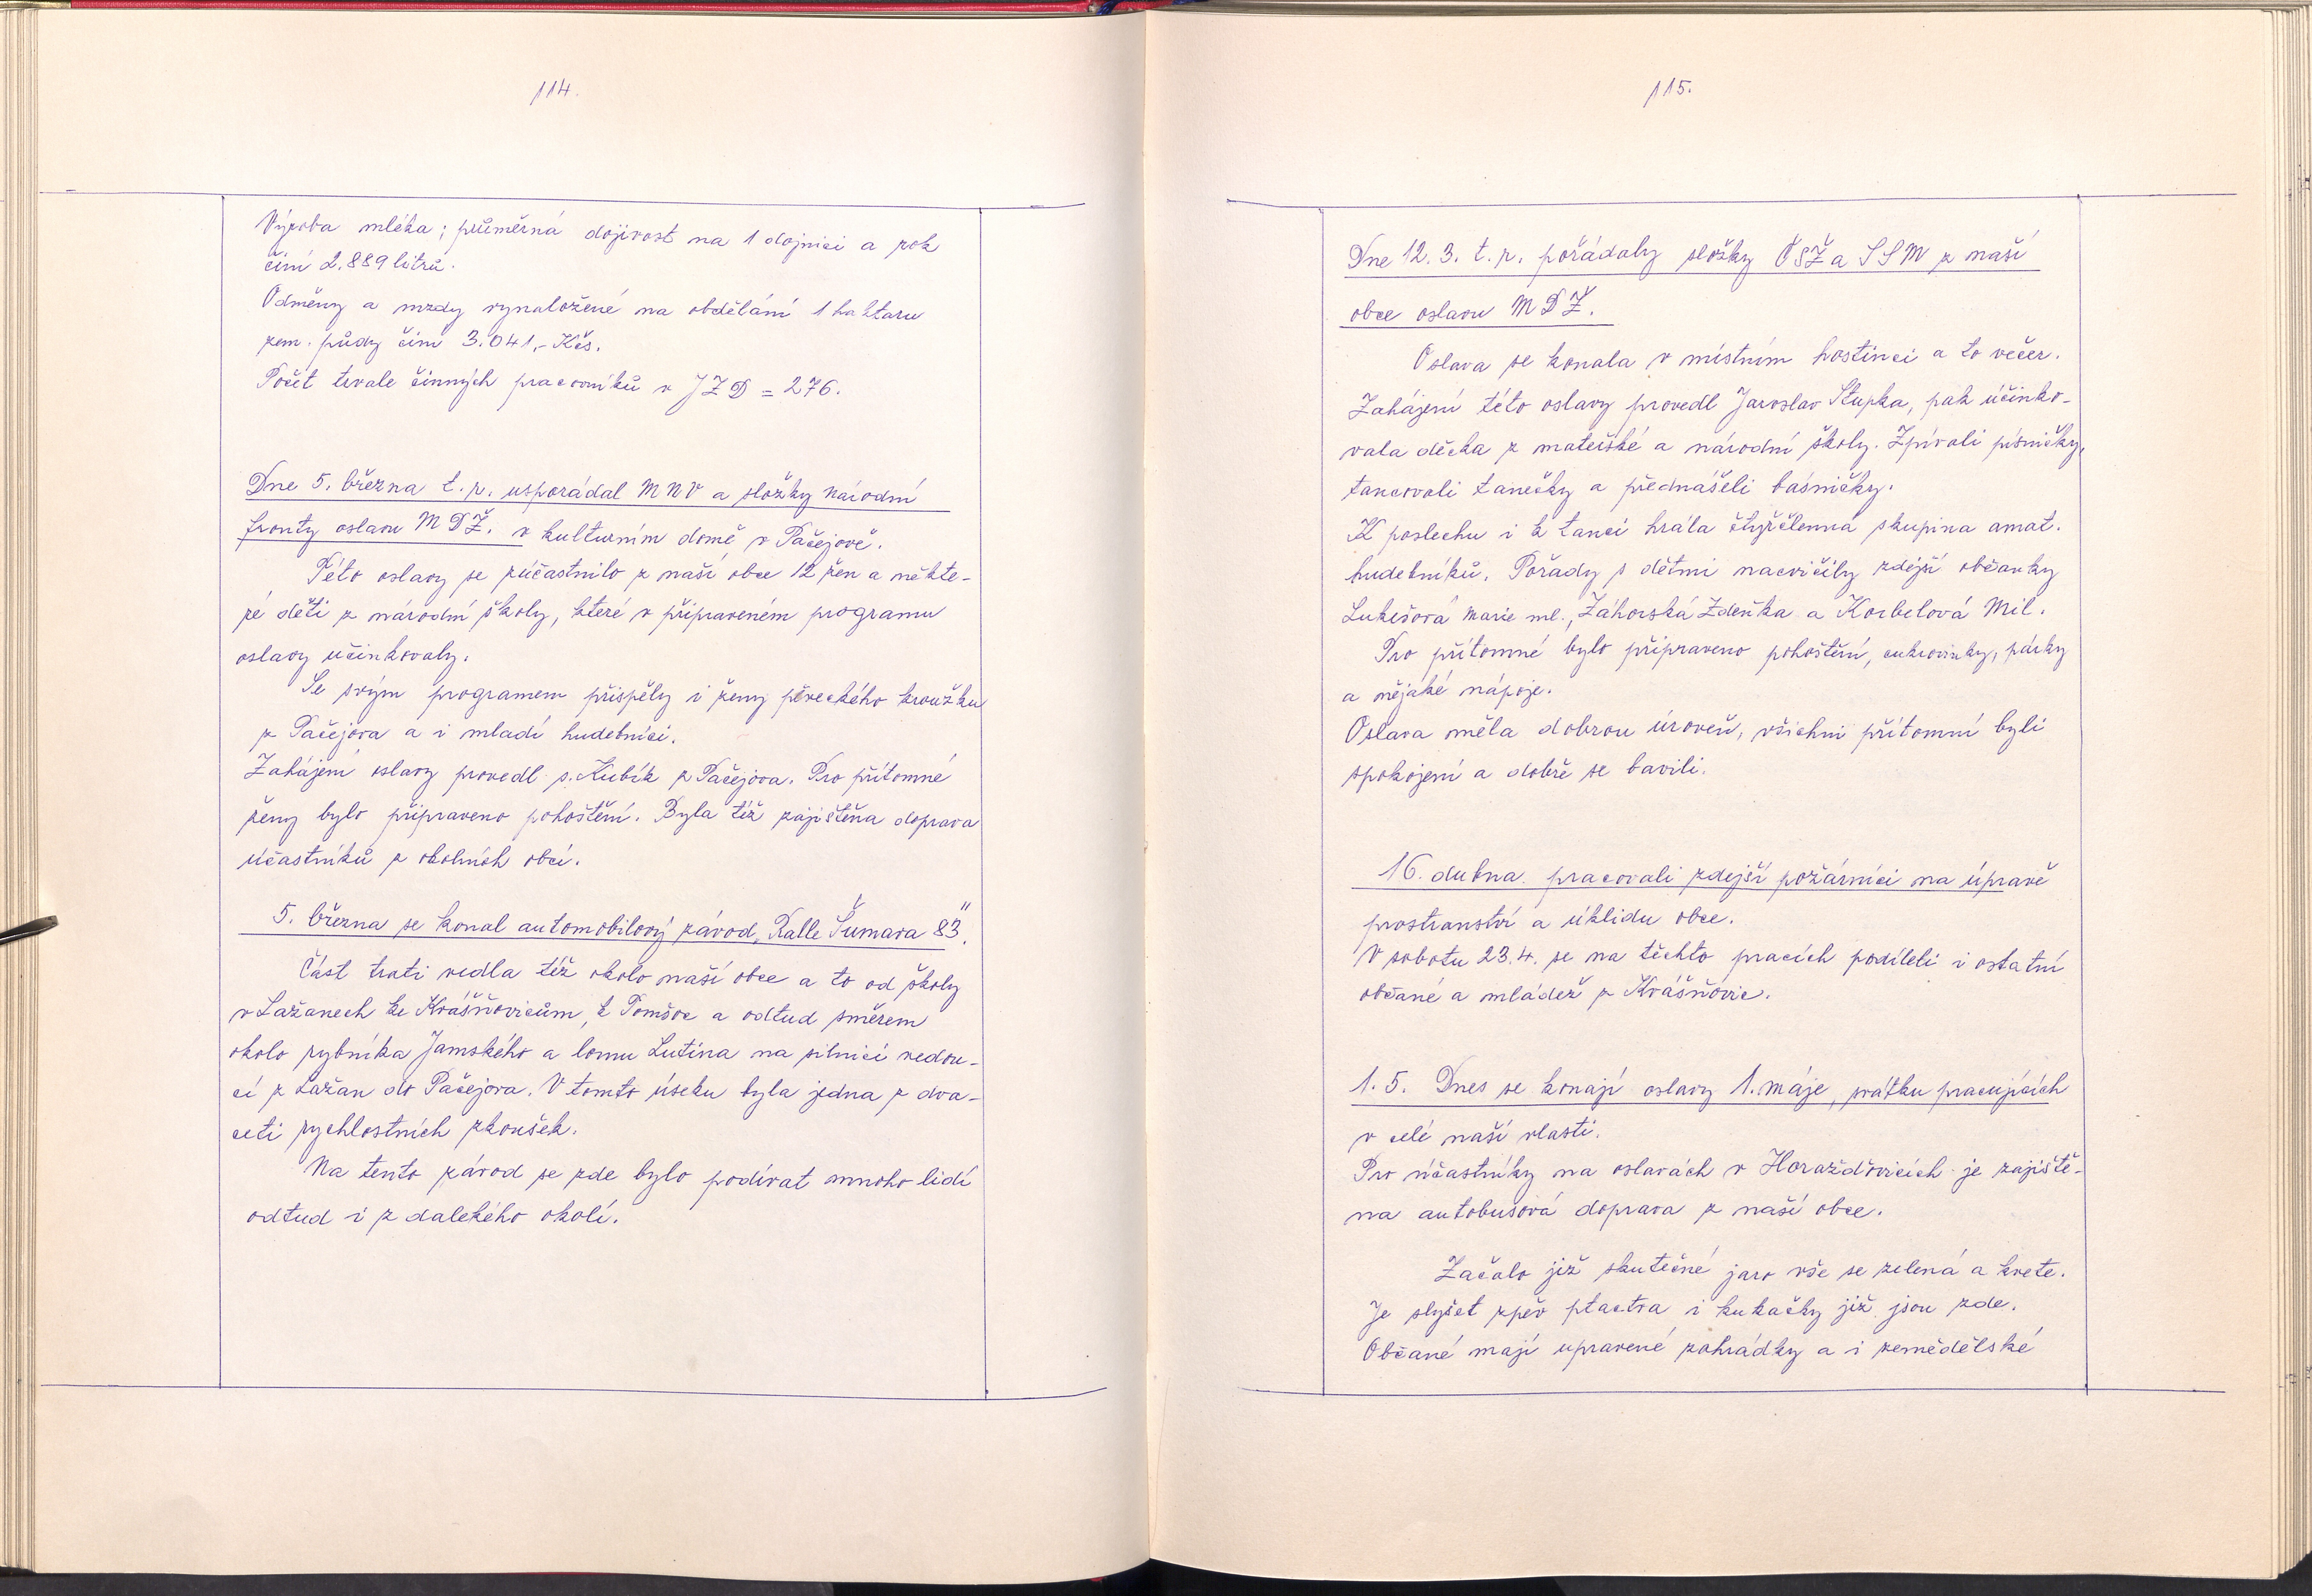 114.
Výroba mléka; průměrná dojivost na 1 dojnici a rok
činí 2.889 litrů.
Odměny a mzdy vynaložené na obdělání 1 haktaru
zem. půdy činí 3.041,- Kčs.
Počet trvale činných pracovníků v JZD = 276.
Dne 5. března t.r. uspořádal MNV a složky národní
fronty oslavu MDŽ. v kulturním domě v Pačejově.
Této oslavy se zúčastnilo z naší obce 12 žen a někte-
ré děti z národní školy, které v připraveném programu
oslavy učinkovaly.
Se svým programem přispěly i ženy pěveckého kroužku
z Pačejova a i mladí hudebníci.
Zahájení oslavy provedl s. Kubík z Pačejova. Pro přítomné
ženy bylo připraveno pohoštění. Byla též zajištěna doprava
účastníků z okolních obcí.
5. března se konal automobilový závod „Ralle Šumava 83".
Část trati vedla též okolo naší obce a to od školy
v Lažanech ke Krášňovicům, k Tomšov a odtud směrem
okolo rybníka Jamského a lomu Lutina na silnici vedou-
cí z Lažan do Pačejova. V tomto úseku byla jedna z dva-
ceti rychlostních zkoušek.
Na tento závod se zde bylo podívat mnoho lidí
odtud i z dalekého okolí.
115.
Dne 12. 3. t.r. pořádaly složky ČSŽ a SSM z naší
obce oslavu MDŽ.
Oslava se konala v místním hostinci a to večer.
Zahájení této oslavy provedl Jaroslav Stupka, pak účinko-
vala děcka z mateřské a národní školy. Zpívali písničky,
tancovali tanečky a přednášeli básničky.
K poslechu i k tanci hrála čtyřčlenná skupina amat.
hudebníků. Pořady s dětmi nacvičily zdejší občanky
Lukešová Marie ml., Záhorská Zdeňka a Korbelová Mil.
Pro přítomné bylo připraveno pohoštění, cukrovinky, párky
a nějaké nápoje.
Oslava měla dobrou úroveň, všichni přítomní byli
spokojení a dobře se bavili.
16. dubna pracovali zdejší požárníci na úpravě
prostranství a úklidu obce.
V sobotu 23.4. se na těchto pracích podíleli i ostatní
občané a mládež z Krášňovic.
1. 5. Dnes se konají oslavy 1. máje, svátku pracujících
v celé naší vlasti.
Pro účastníky na oslavách v Horažďovicích je zajiště-
na autobusová doprava z naší obce.
Začalo již skutečné jaro vše se zelená a kvete.
Je slyšet zpěv ptactva i kukačky již jsou zde.
Občané mají upravené zahrádky a i zemědělské